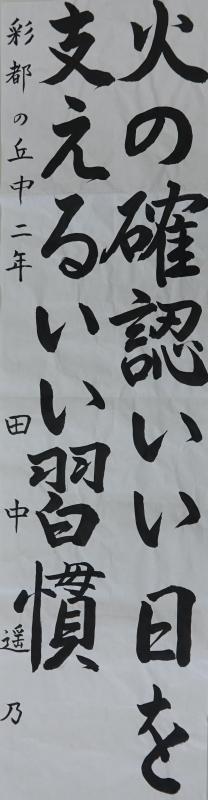 火の確認いい日を
支えるいい習慣
彩都の丘中二年 田中遥乃